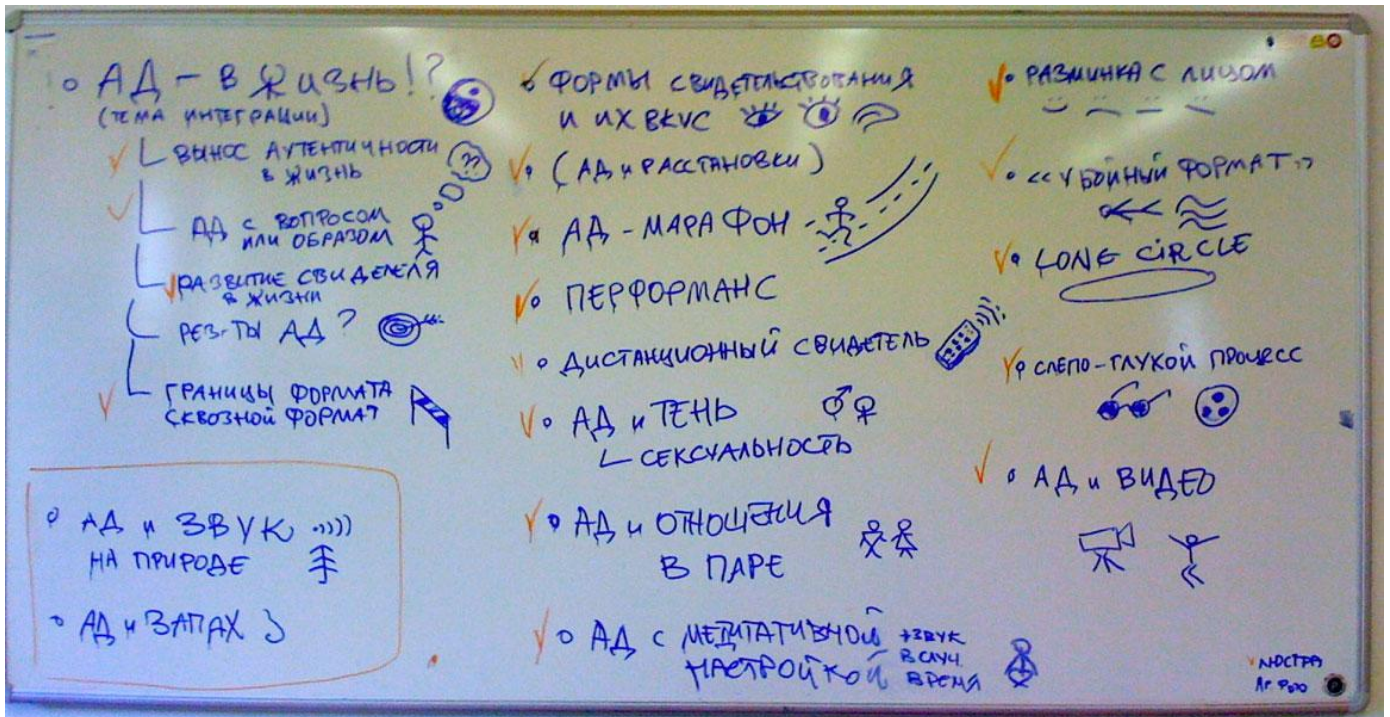 АД – В ЖИЗНЬ!?
(ТЕМА ИНТЕГРАЦИИ)
ВЫНОС АУТЕНТИЧНОСТИ
В ЖИЗНЬ
??
АД С ВОПРОСОМ
ИЛИ ОБРАЗОМ
РАЗВИТИЕ СВИДЕТЕЛЯ
В ЖИЗНИ
РЕЗ-ТЫ АД?
ГРАНИЦЫ ФОРМАТА
СКВОЗНОЙ ФОРМАТ
АД и ЗВУК
НА ПРИРОДЕ
АД и ЗАПАХ
ФОРМЫ СВИДЕТЕЛЬСТВОВАНИЯ
И ИХ ВКУС
(АД и РАССТАНОВКИ)
АД – МАРАФОН
ПЕРФОРМАНС
ДИСТАНЦИОННЫЙ СВИДЕТЕЛЬ
АД и ТЕНЬ
СЕКСУАЛЬНОСТЬ
АД и ОТНОШЕНИЯ
В ПАРЕ
АД С МЕДИТАТИВНОЙ
НАСТРОЙКОЙ
+ЗВУК
В СЛУЧ.
ВРЕМЯ
РАЗМИНКА С ЛИЦОМ
«УБОЙНЫЙ ФОРМАТ»
LONG CIRCLE
СЛЕПО-ГЛУХОЙ ПРОЦЕСС
АД и ВИДЕО
ЛЮСТРА